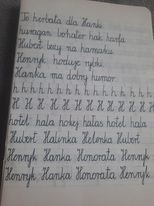 To herbata dla Hanki.
huragan bohater hak harfa
Hubert leży na hamaku.
Henryk hoduje rybki.
Hanka ma dobry humor.
h h h h h h h h h h h h h
H H H H H H H H H H
hotel hala hokej hałas hotel hala
Hubert Halinka Helenka Hubert
Henryk Hanka Honorata Henryk
Henryk Hanka Honorata Henryk